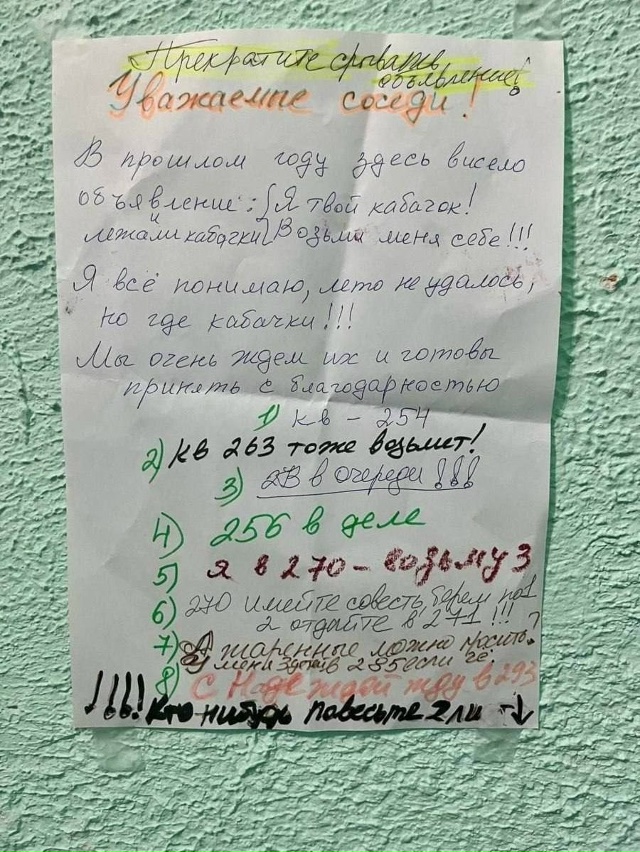 Прекратите срывать
объявление!
Уважаемые соседи!
В прошлом году здесь висело
объявление: Я твой кабачок!
и лежали кабачки Возьми меня себе!!!
Я всё понимаю, лето не удалось,
но где кабачки!!!
Мы очень ждем их и готовы
принять с благодарностью
1) кв - 254
2) кв 263 тоже возьмит!
3) 2В в очереди!!!
4) 256 в деле
5) Я в 270 - возьму 3
6) 270 имейте совесть, берем по 1
2 отдайте в 271!!!
7) А жаренные можно просить?
У меня зубов если че.
8) С Надеждой жду в 293
!!!! Кто нибудь повесьте 2 ли →↓